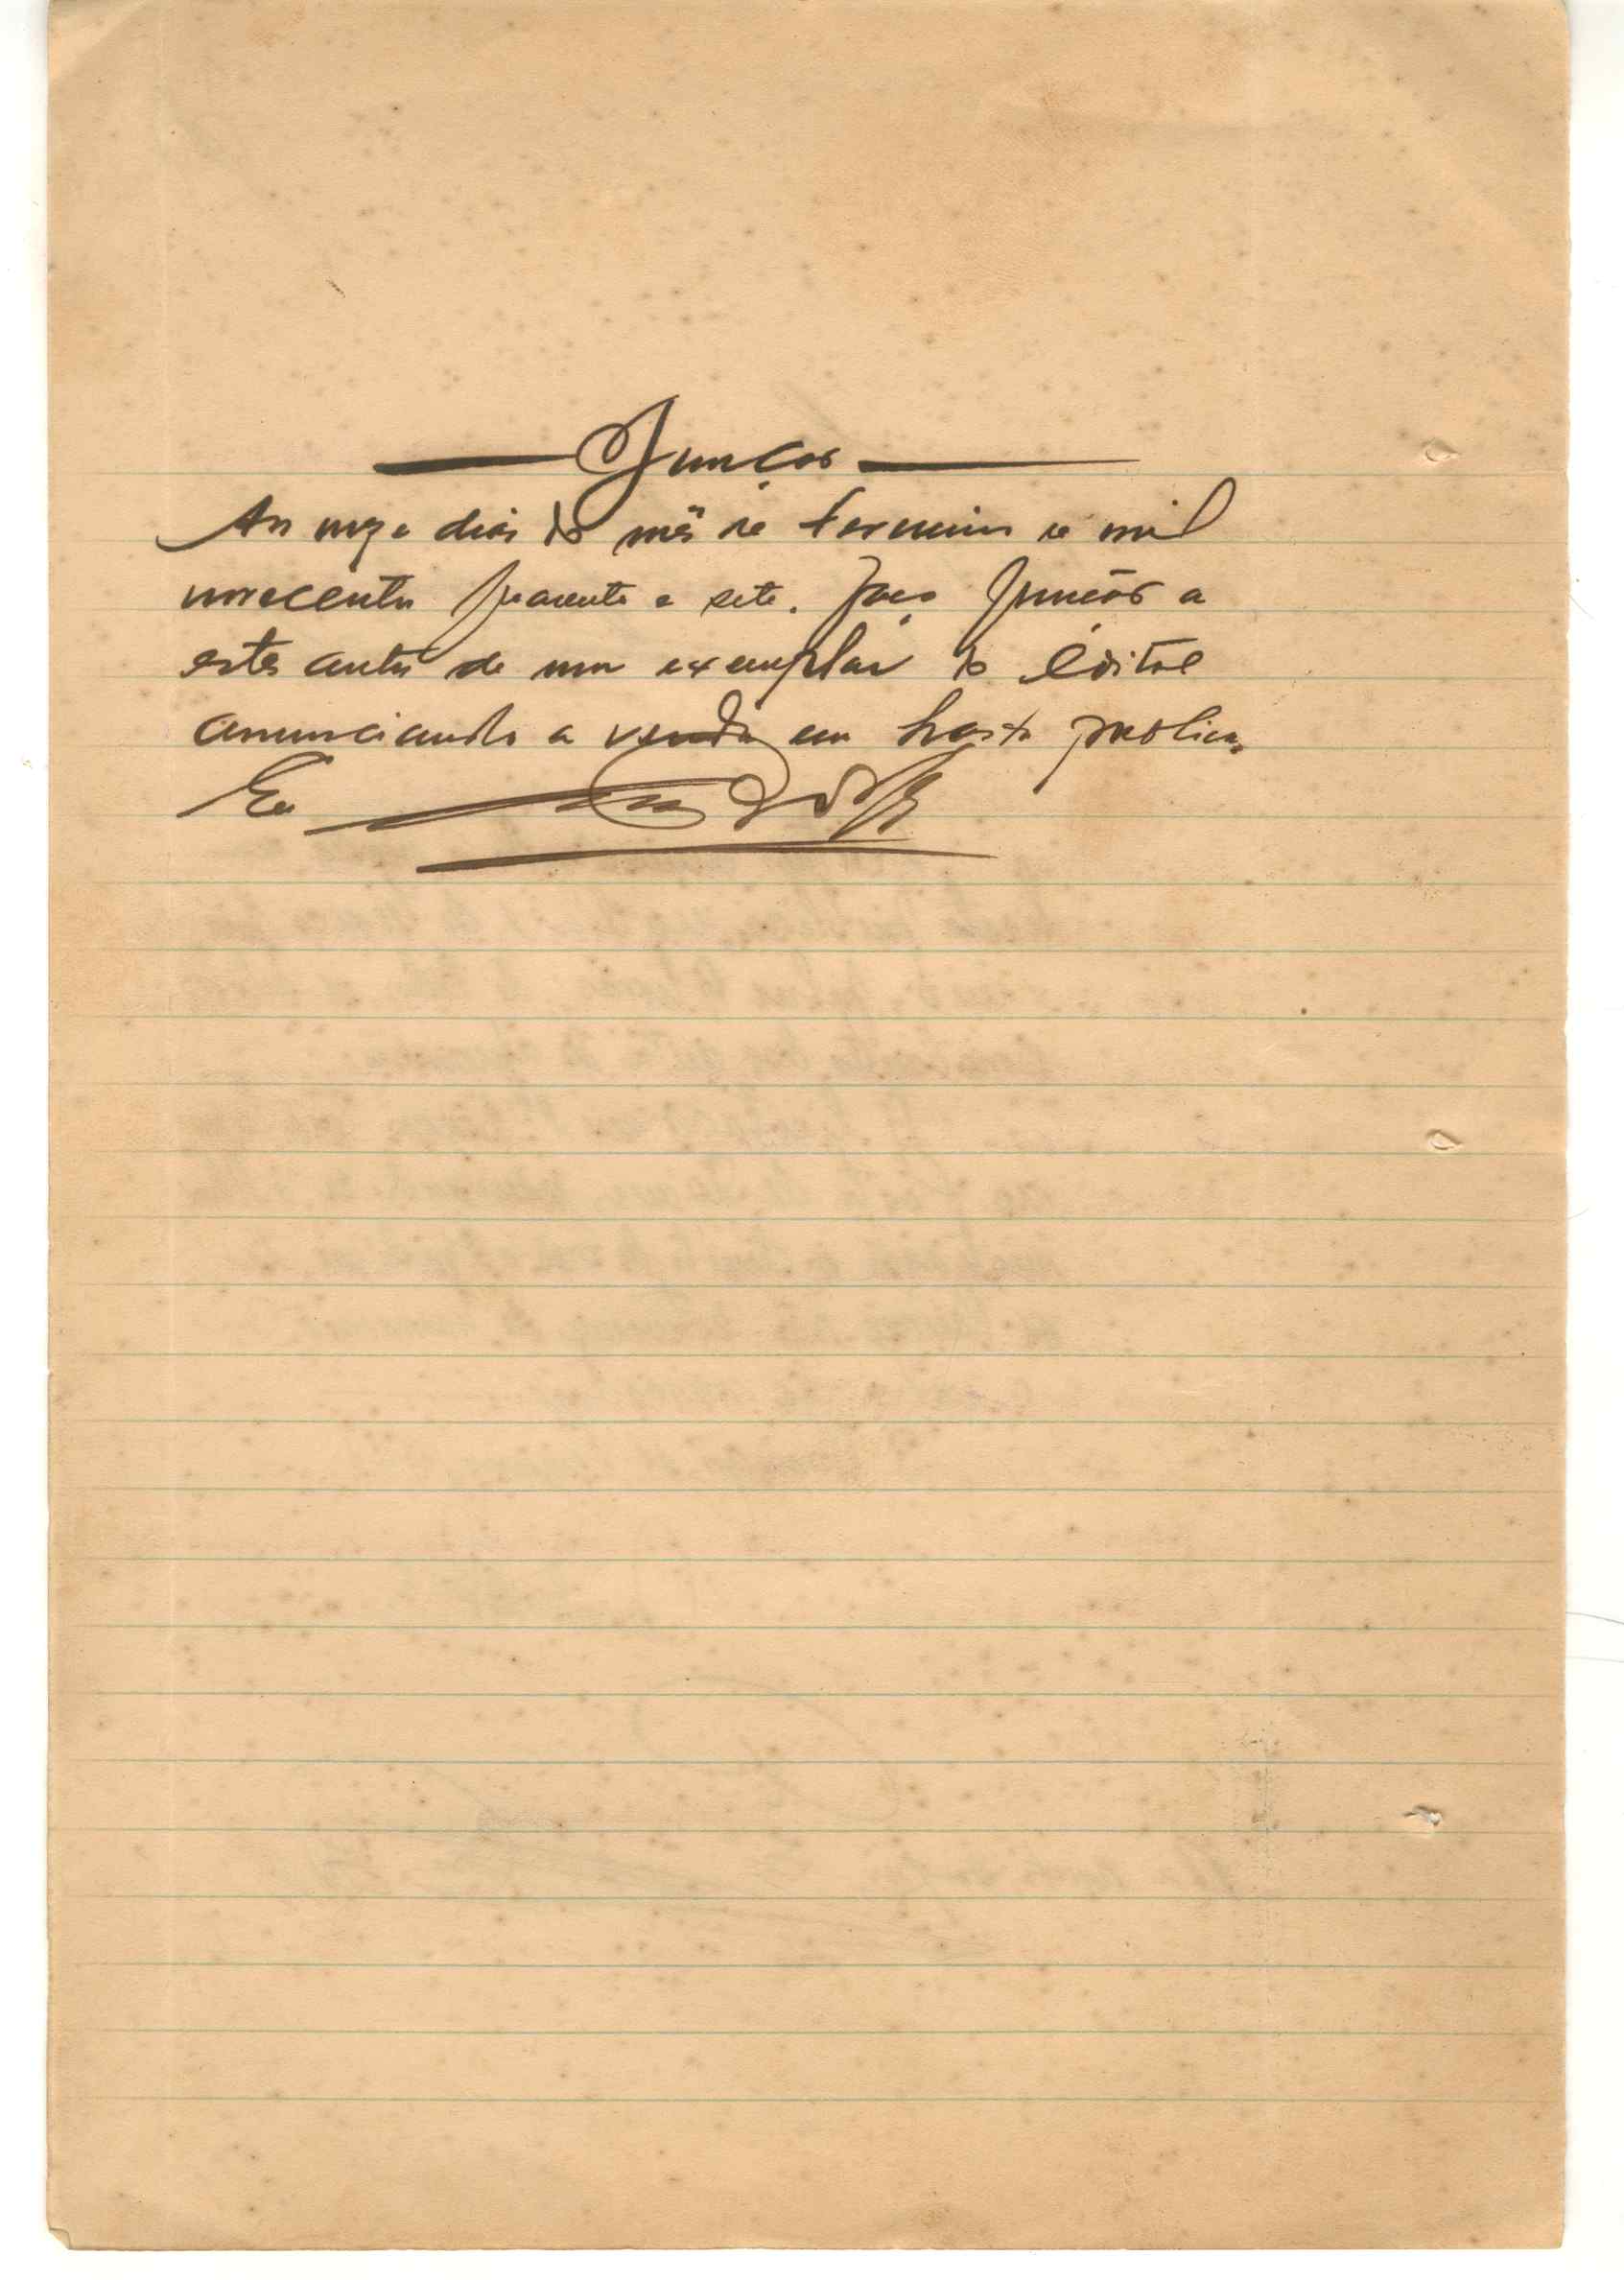 Junção
Aos onze dias do mês de Fevereiro de mil
novecentos quarenta e sete. Faço Junção a
estes autos de um exemplar do Edital
anunciando a venda em hasta publica.
Eu